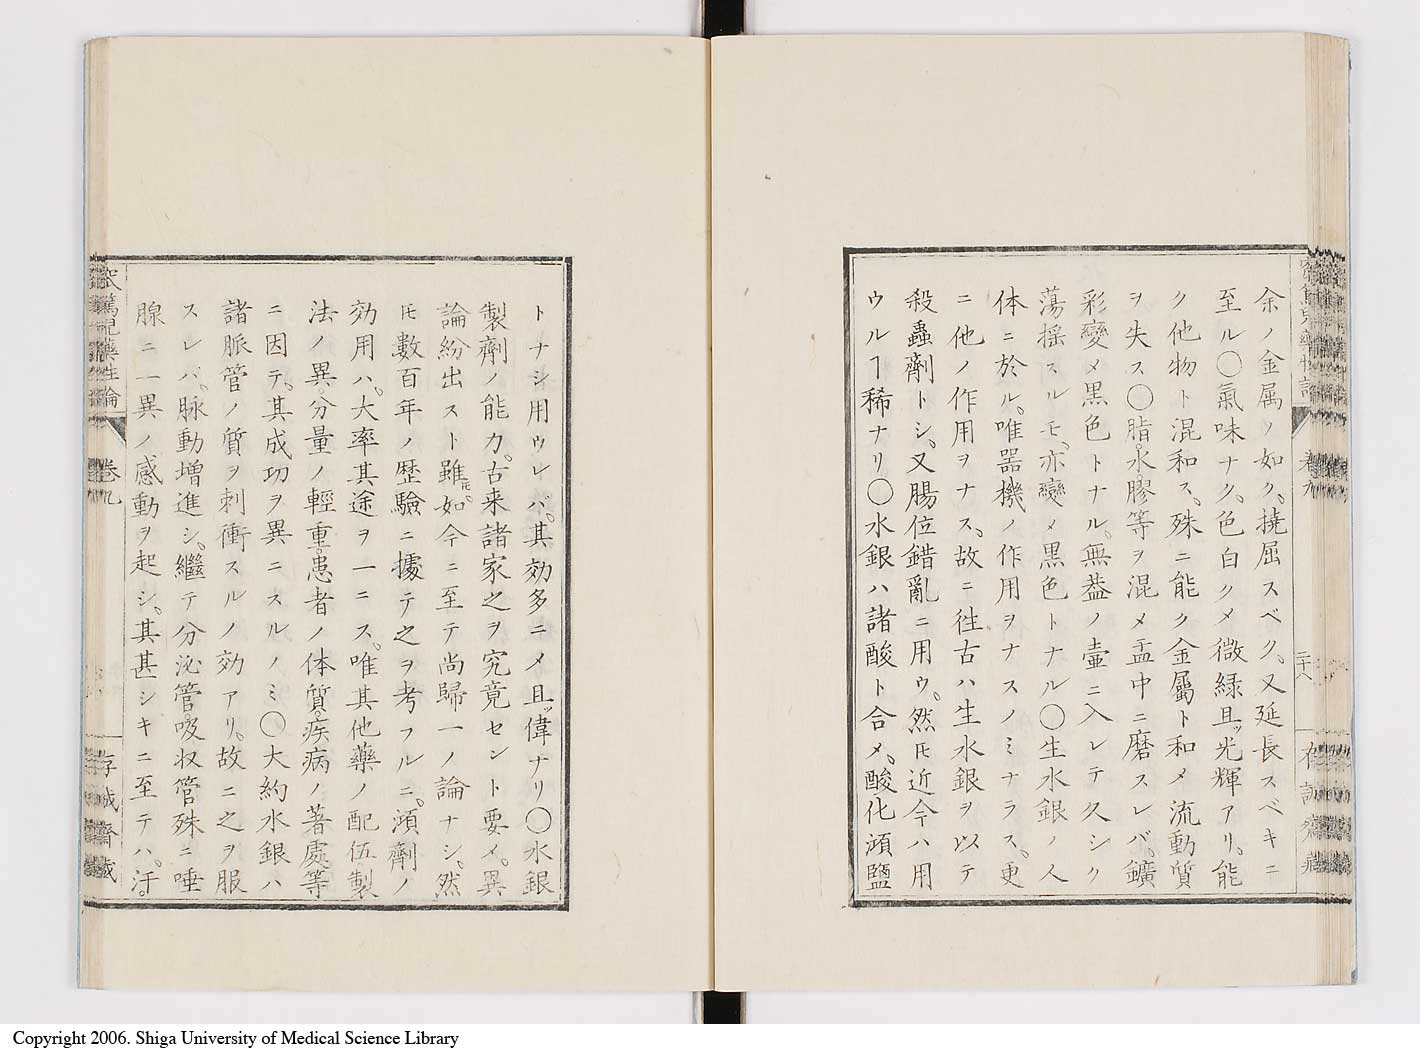 余ノ金属ノ如ク、撓屈スベク、又延長スベキニ
至ル〇氣味ナク、色白クメ微緑且ッ光輝アリ、能
ク他物ト混和ス、殊ニ能ク金屬ト和メ流動質
ヲ失ス〇脂、水膠等ヲ混メ盂中ニ磨スレバ、鑛
彩變メ黒色トナル、無蓋ノ壷ニ入レテ久シク
蕩揺スルモ、亦變メ黒色トナル〇生水銀ノ人
体ニ於ル、唯器機ノ作用ヲナスノミナラス、更
ニ他ノ作用ヲナス、故ニ徃古ハ生水銀ヲ以テ
殺蟲劑トシ、又腸位錯亂ニ用ウ、然𪜈近今ハ用
ウルヿ稀ナリ〇水銀ハ諸酸ト合メ、酸化澒鹽
二十八
存誠齋蔵
トナシ用ウレバ、其効多ニメ且ッ偉ナリ〇水銀
製劑ノ能力、古来諸家之ヲ究竟セント要メ、異
論紛出スト雖𪜈、如今ニ至テ尚歸一ノ論ナシ、然
𪜈數百年ノ歴驗ニ據テ之ヲ考フルニ、澒劑ノ
効用ハ、大率其途ヲ一ニス、唯其他藥ノ配伍製
法ノ異、分量ノ輕重、患者ノ体質、疾病ノ著處等
ニ因テ、其成功ヲ異ニスルノミ〇大約水銀ハ
諸脈管ノ質ヲ刺衝スルノ効アリ、故ニ之ヲ服
スレバ、脉動増進シ、繼テ分泌管吸収管殊ニ唾
腺ニ一異ノ感動ヲ起シ、其甚シキニ至テハ、汗、
窊篤児藥性論
巻九
存誠齋蔵
Copyright 2006. Shiga University of Medical Science Library